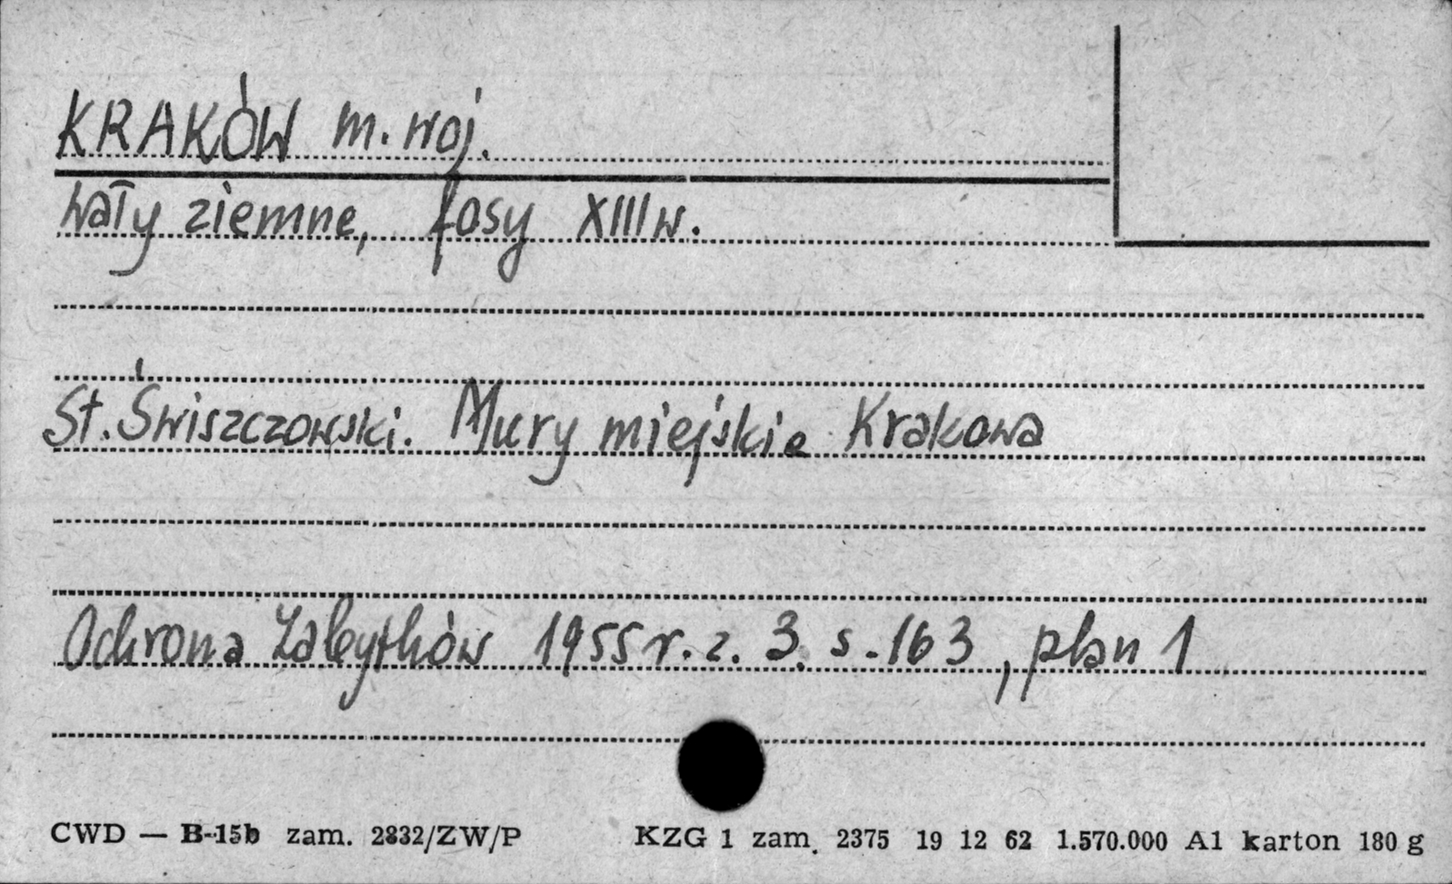 KRAKÓW m. woj.
wały ziemne, fosy XIII w.
St. Świszczowski. Mury miejskie Krakowa
Ochrona Zabytków 1955 r. z. 3. s. 163, plan 1
CWD — B-15b zam. 2832/ZW/P KZG 1 zam. 2375 19 12 62 1.570.000 A1 karton 180 g